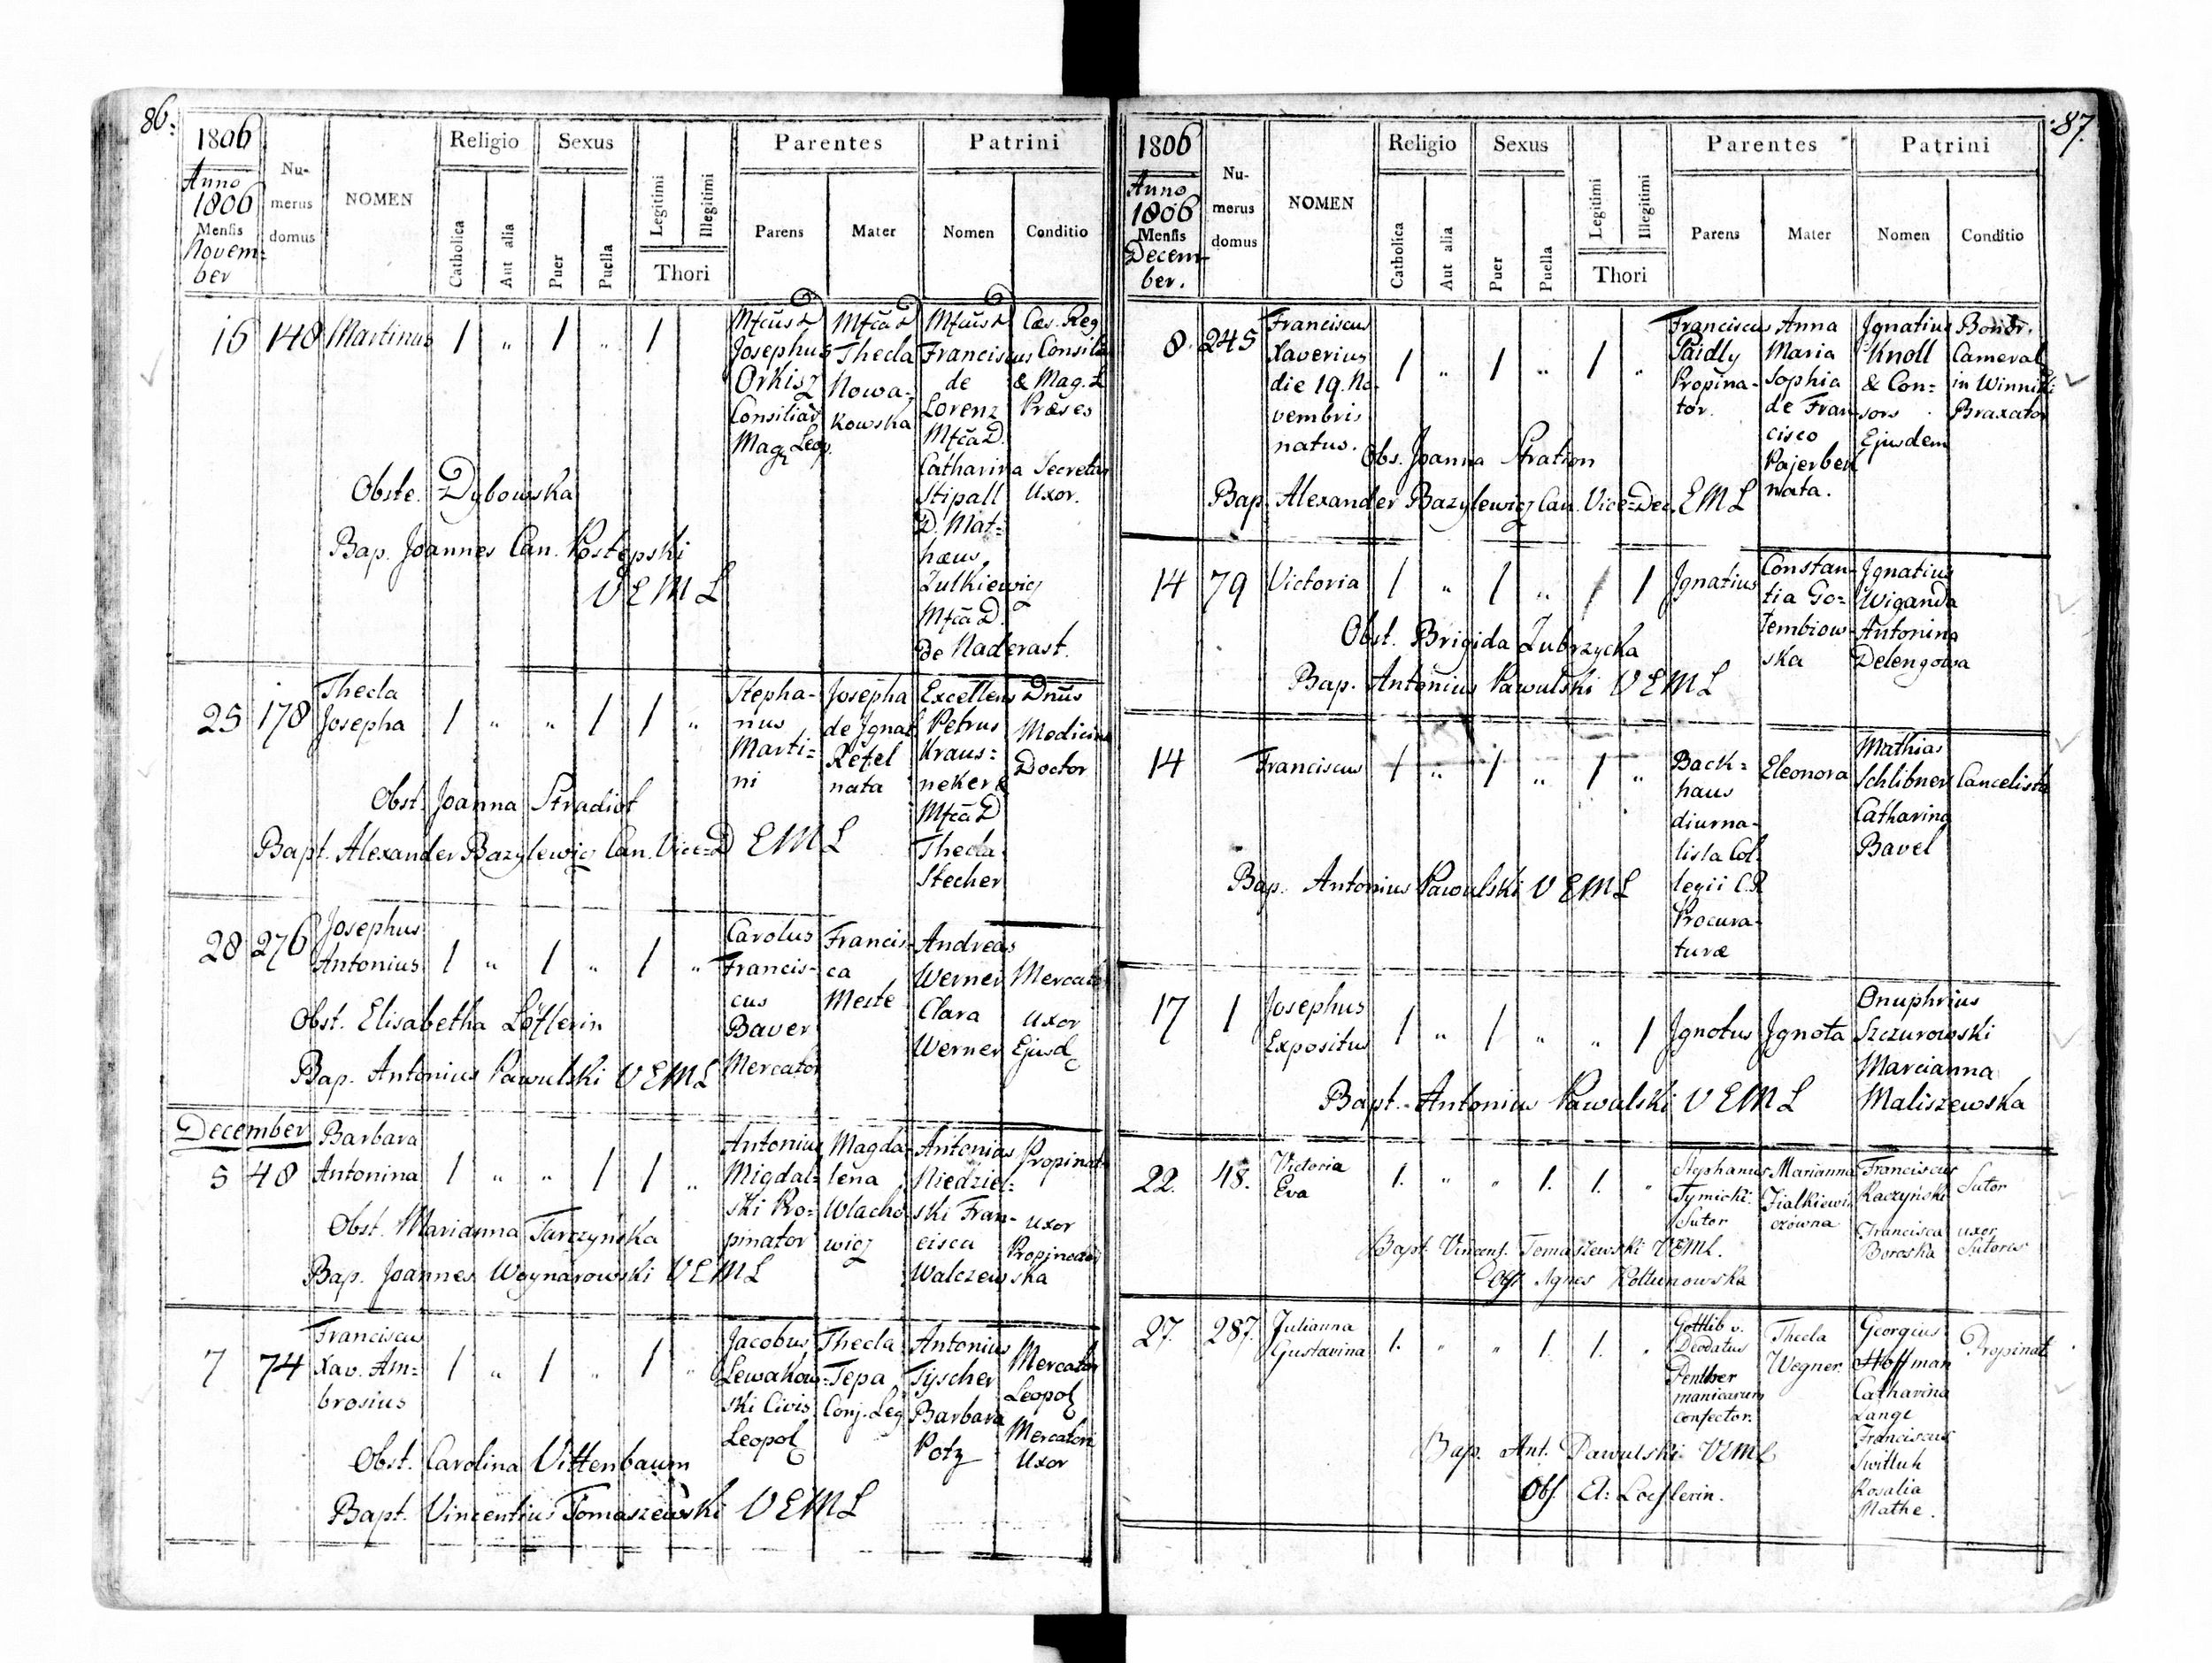 86.
1806
Anno
1806
Mensis
Novem-
ber
Nu-
merus
domus
NOMEN
Religio
Catholica
Aut alia
Sexus
Puer
Puella
Legitimi
Illegitimi
Thori
Parentes
Parens
Mater
Patrini
Nomen
Conditio
148 Martinus / „ / „ /
Josephus
Orkisz
Consiliar
Mag. Leop.
Thecla
Nowa-
kowska
Franciscus
de
Lorenz
Catharina
Stipall
D. Mat-
haus
Zulkiewicz
de Naderast.
Cæs. Reg.
Consil.
& Mag. L
Præses
Uxor.
Obste. Dybowska
Bap. Joannes Can. Postępski
V E M L
25 178
Thecla
Josepha
/ „ „ / / „
Stepha-
nus
Marti-
ni
Josepha
de Ignat.
nata
Excellens
Petrus
Kraus-
neker &
Thecla
Stecher
Dnus
Medicinæ
Doctor
Obst. Joanna Stradiot
Bapt. Alexander Bazylewicz Can. Vice-D E M L
28 276
Josephus
Antonius
/ „ / „ / „
Carolus
Francis-
cus
Baver
Mercator
Francis-
ca
Andreas
Werner
Clara
Werner
Mercator
Uxor
Ejusd
Obst. Elisabetha Löflerin
Bap. Antonius Pawulski V E M L
December
5 48
Barbara
Antonina
/ „ „ / / „
Antonius
Migdal-
ski Pro-
pinator
Magda-
lena
Wlacho-
wicz
Antonius
Niedziel-
ski Fran-
cisca
Walczewska
Propinat
Uxor
Obst. Marianna Tarczyńska
Bap. Joannes Woynarowski V E M L
7 74
Franciscus
Xav. Am-
brosius
/ „ / „ / „
Jacobus
Lewakow-
ski Civis
Leopol
Thecla
Tepa
Conj. Leg
Antonius
Tÿscher
Barbara
Potz
Mercator
Leopol
Mercatoris
Uxor
Obst. Carolina Vittenbaum
Bapt. Vincentius Tomaszewski V E M L
87.
1806
Anno
1806
Mensis
Decem-
ber.
Nu-
merus
domus
NOMEN
Religio
Catholica
Aut alia
Sexus
Puer
Puella
Legitimi
Illegitimi
Thori
Parentes
Parens
Mater
Patrini
Nomen
Conditio
8. 245
Franciscus
Xaverius
die 19. No-
vembris
natus.
/ „ / „ / „
Franciscus
Propina-
tor.
Anna
Maria
Sophia
de Fran-
cisco
nata.
Ignatius
Knoll
& Con-
sors
Ejusdem
Cameral
in Winniki
Braxator
Obs. Joanna Stration
Bap. Alexander Bazylewicz Can. Vice-Dec. E M L
14 79 Victoria / „ / „ / /
Ignatius
Constan-
tia Go-
lembiow-
ska
Ignatius
Wiganda
Antonina
Delengowa
Obst. Brigida Zubrzycka
Bap. Antonius Pawulski V E M L
14 Franciscus / „ / „ / „
Back-
haus
diurna-
lista Col-
legii C.R.
Procura-
turæ
Eleonora
Mathias
Schlibner
Catharina
Bavel
Cancelista
Bap. Antonius Pawulski V E M L
17 1
Josephus
Expositus
/ „ / „ „ /
Ignotus Ignota
Onuphrius
Szczurowski
Marcianna
Maliszewska
Bapt. Antonius Pawulski V E M L
22. 48.
Victoria
Eva
/. „ „ /. /. „
Stephanus
Tymicki
Sutor
Marianna
Fialkiewi-
czowna
Franciscus
Raczyński
Francisca
Boroska
Sutor
uxor
Sutoris
Bapt. Vincent. Tomaszewski VEML.
Obst Agnes Koltunowska
27. 287.
Julianna
Gustavina
/. „ „ /. /. „
Gottlib v.
Deodatus
manicarum
confector.
Thecla
Wegner.
Georgius
Hoffman
Catharina
Lange
Franciscus
Rosalia
Mathe.
Propinat.
Bap. Ant. Pawulski VEML
Obs. El: Loeflerin.